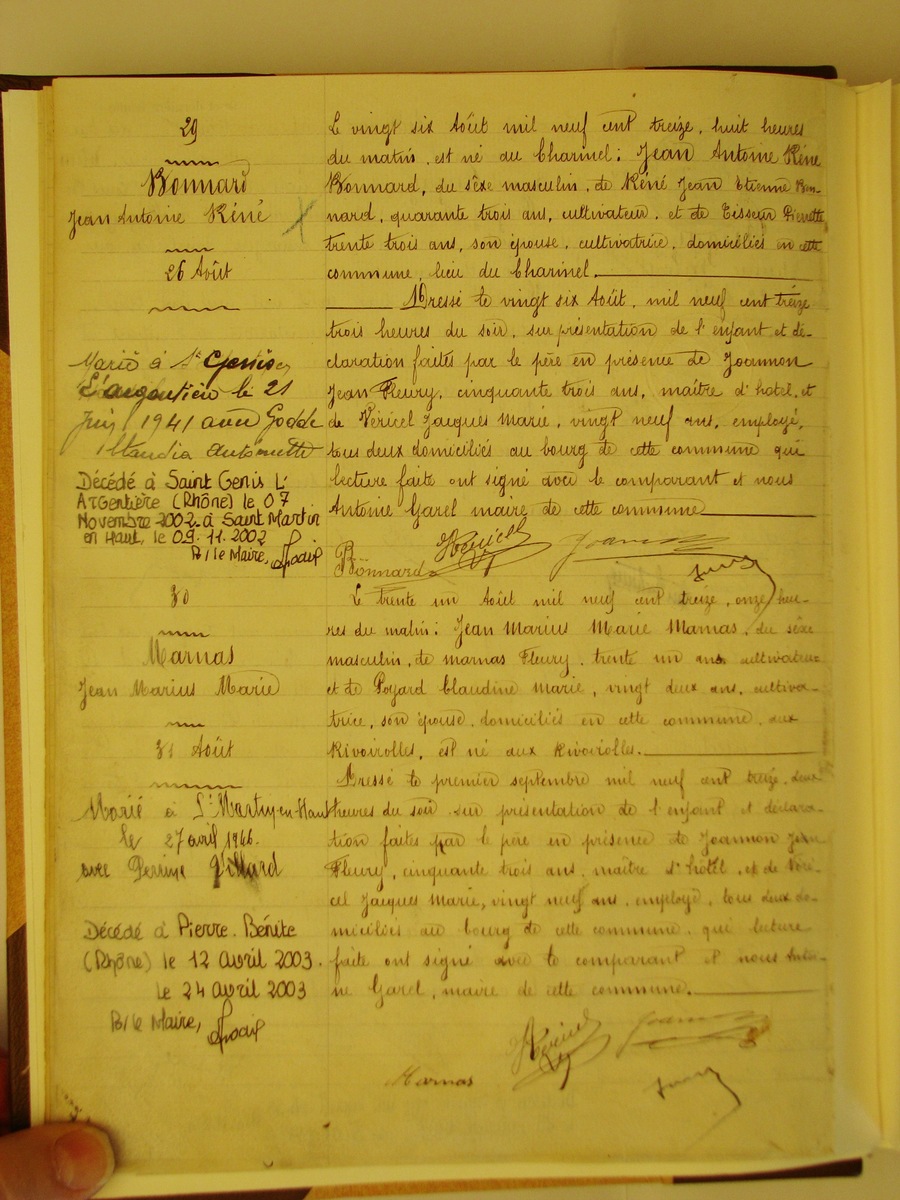 29
Bonnard
Jean Antoine Réné
26 Août
Marié à St Genis
L'argentière le 21
Juin 1941 avec Godde
Claudia Antoinette
Décédé à Saint Genis L'
Argentière (Rhône) le 07
Novembre 2002 à Saint Martin
en Haut, le 09.11.2002
P/le Maire,
Le vingt six Août mil neuf cent treize, huit heures
du matin, est né au Charinel: Jean Antoine Réné
Bonnard, du sêxe masculin, de Réné Jean Etienne Bon-
nard, quarante trois ans, cultivateur, et de Tisseur Pierrette
trente trois ans, son épouse, cultivatrice, domiciliés en cette
commune, lieu du Charinel.
Dressé le vingt six Août, mil neuf cent treize
trois heures du soir, sur présentation de l'enfant et dé-
claration faites par le père en présence de Joannon
Jean Fleury, cinquante trois ans, maître d'hotel, et
de Véricel Jacques Marie, vingt neuf ans, employé,
tous deux domiciliés au bourg de cette commune qui
lecture faite ont signé avec le comparant et nous
Antoine Garel maire de cette commune
Bonnard JVéricel Joannon
30
Marnas
Jean Marius Marie
31 Août
Marié à St Martin-en-Haut
le 27 avril 1946.
avec Perrine Villard
Décédé à Pierre-Bénite
(Rhône) le 12 avril 2003.
le 24 avril 2003
P/le Maire,
Le trente un Août mil neuf cent treize, onze heu-
res du matin: Jean Marius Marie Marnas, du sêxe
masculin, de marnas Fleury, trente un ans cultivateur
et de Poyard Claudine Marie, vingt deux ans, cultiva-
trice, son épouse, domiciliés en cette commune, aux
Rivoirolles, est né aux Rivoirolles.
Dressé le premier septembre mil neuf cent treize, deux
heures du soir sur présentation de l'enfant et déclara-
tion faites par le père en présence de Joannon Jean
Fleury, cinquante trois ans, maître d'hôtel, et de Véri-
cel Jacques Marie, vingt neuf ans, employé, tous deux do-
miciliés au bourg de cette commune, qui lecture
faite ont signé avec le comparant et nous Antoi-
ne Garel, maire de cette commune.
JVéricel Joannon
Marnas